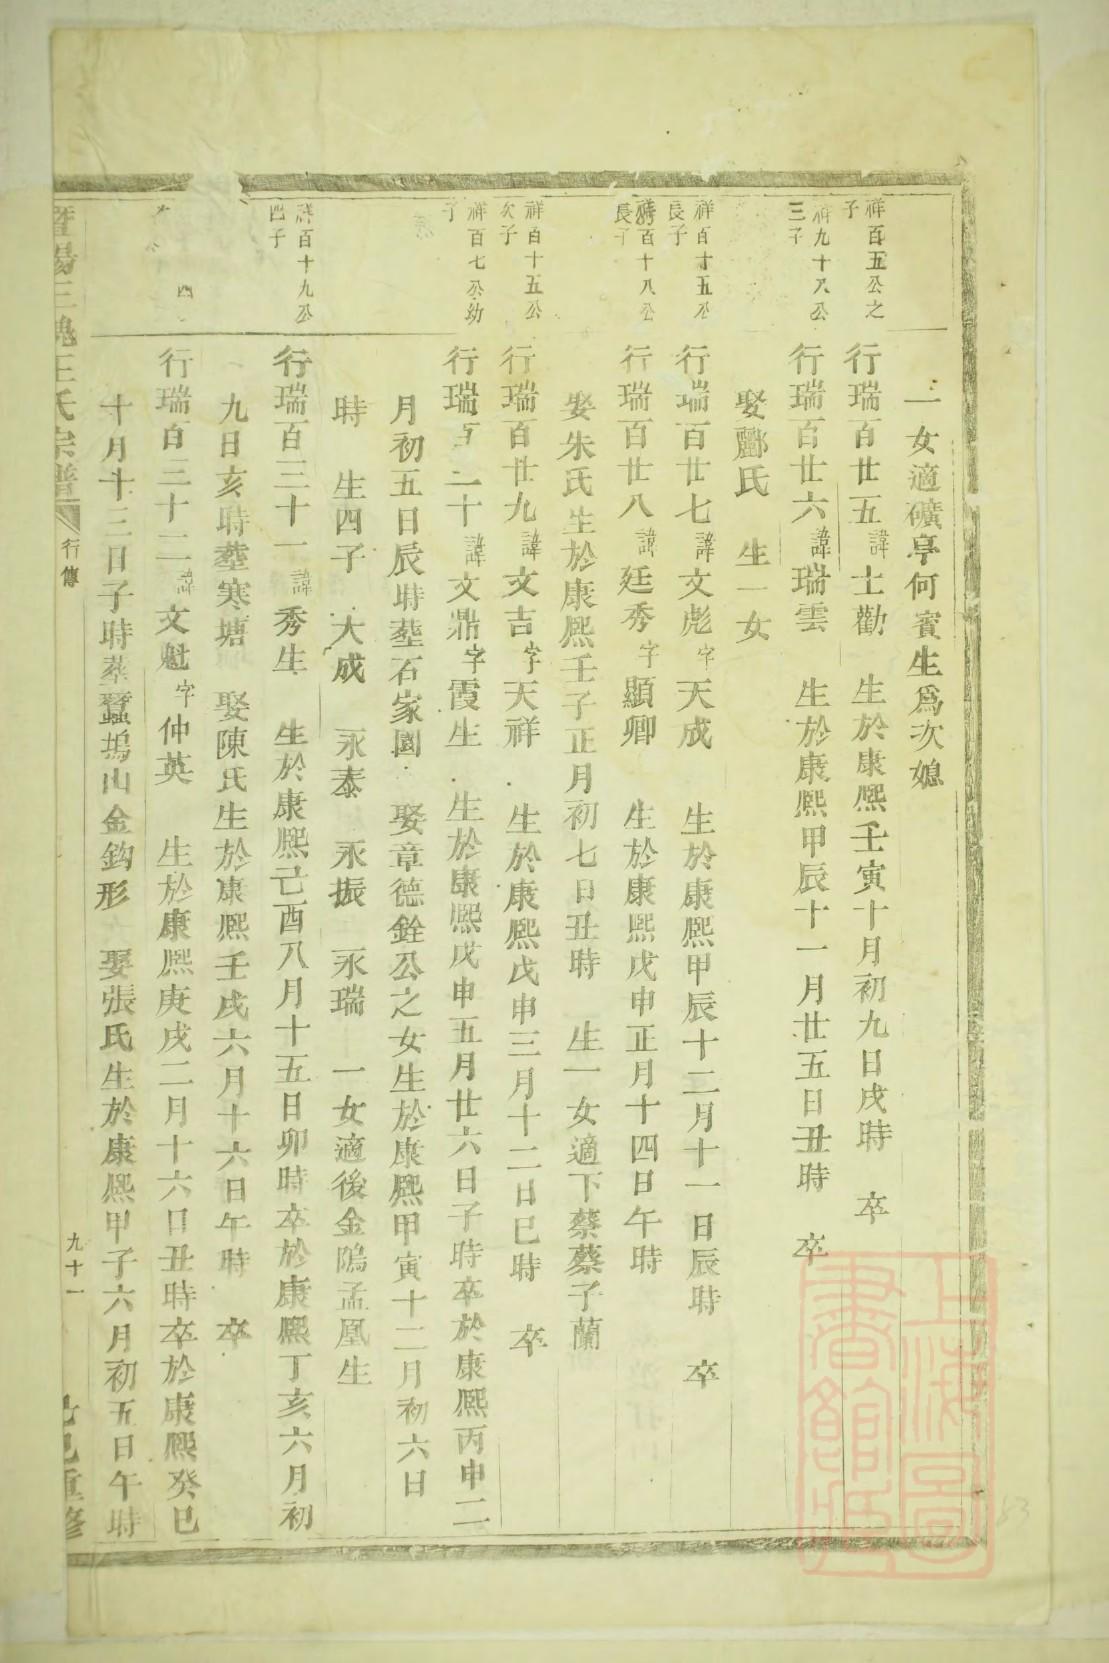 一女適礦亭何賓生爲次媳
祥百五公之
子
行瑞百廿五諱士勸 生於康熙壬寅十月初九日戌時 卒
祥九十八公
三子
行瑞百廿六諱瑞雲 生於康熙甲辰十一月廿五日丑時 卒
娶酈氏 生一女
祥百十五公
長子
行瑞百廿七諱文彪字天成 生於康熙甲辰十二月十一日辰時 卒
祥百十八公
長子
行瑞百廿八諱廷秀字顯卿 生於康熙戊申正月十四日午時
娶朱氏生於康熙壬子正月初七日丑時 生一女適下蔡蔡子蘭
祥百十五公
次子
行瑞百廿九諱文吉字天祥 生於康熙戊申三月十二日巳時 卒
祥百七公幼
子
行瑞百二十諱文鼎字霞生 生於康熙戊申五月廿六日子時卒於康熙丙申二
月初五日辰時塟石家園 娶章德銓公之女生於康熙甲寅十二月初六日
時 生四子 大成 永泰 永振 永瑞 一女適後金隖孟鳳生
祥百十九公
四子
行瑞百三十一諱秀生 生於康熙己酉八月十五日卯時卒於康熙丁亥六月初
九日亥時塟寒塘 娶陳氏生於康熙壬戌六月十六日午時 卒
四
行瑞百三十二諱文魁字仲英 生於康熙庚戌二月十六日丑時卒於康熙癸巳
十月十三日子時塟蠶塢山金鈎形 娶張氏生於康熙甲子六月初五日午時
暨陽三槐王氏宗譜 行傳 九十一 己巳重修
上海圖書館藏
83